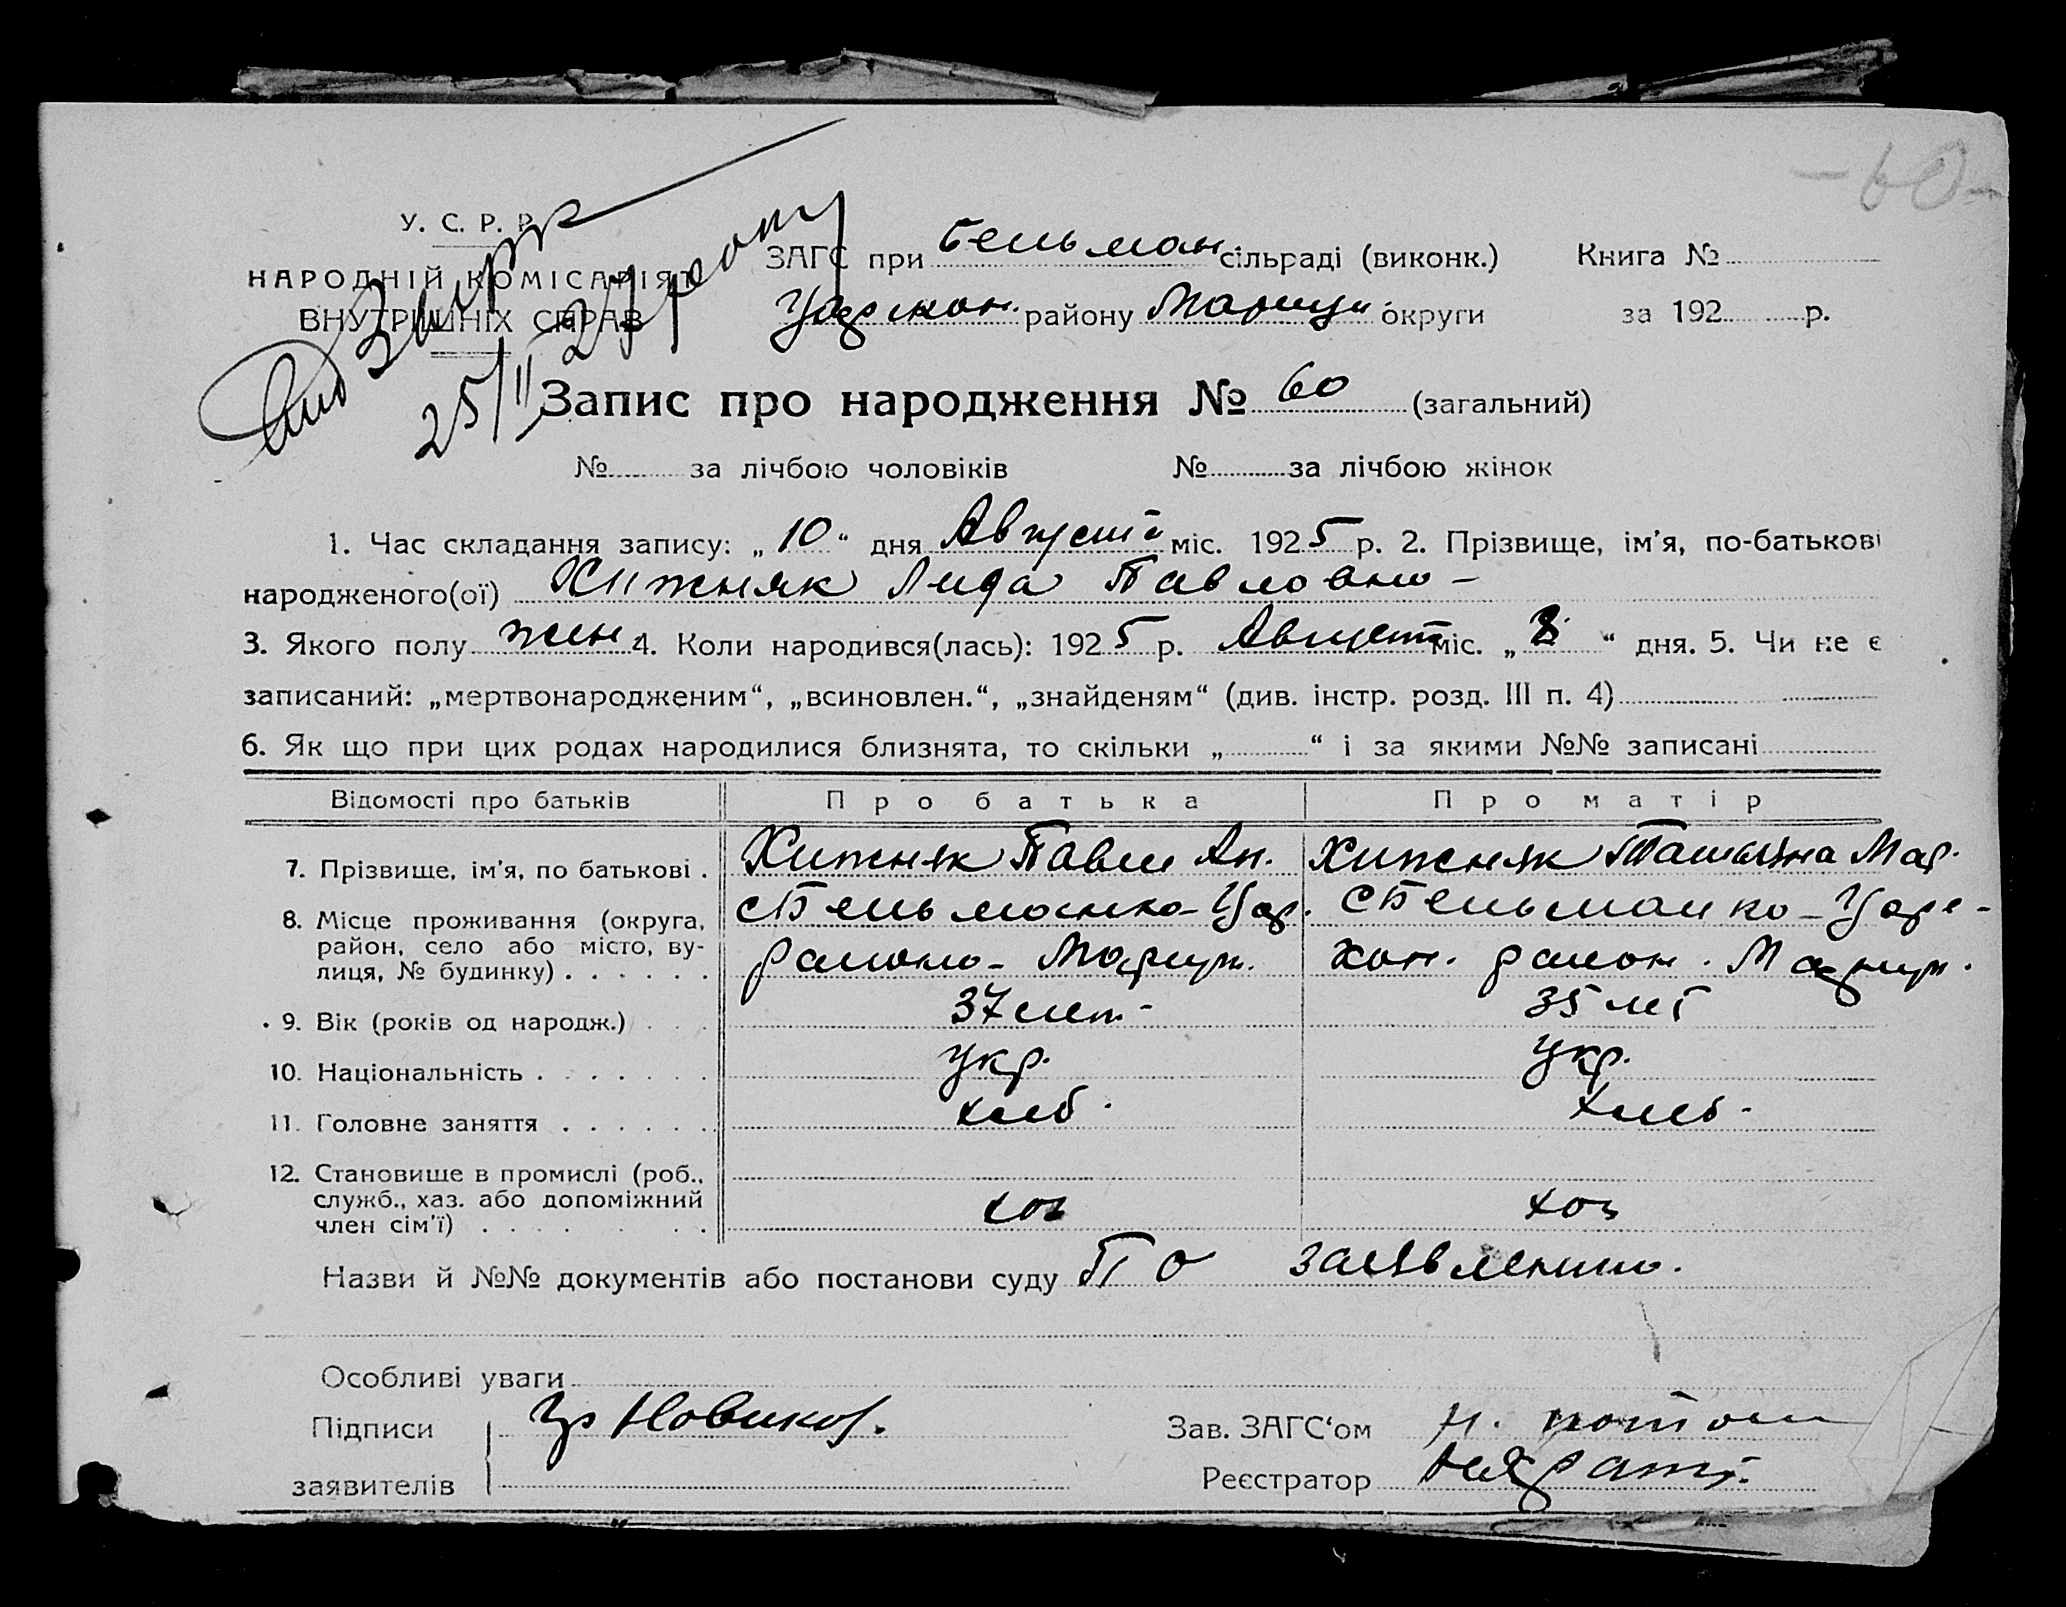 - 60 -
У. С. Р. Р.
НАРОДНІЙ КОМІСАРІЯТ
ВНУТРІШНІХ СПРАВ
25/II 27
ЗАГС при Бельман. сільраді (виконк.) Книга №
Царекон. району Мариуп. округи за 192 р.
Запис про народження № 60 (загальний)
№ за лічбою чоловіків № за лічбою жінок
1. Час складання запису: „10“ дня Августа міс. 1925 р. 2. Прізвище, ім'я, по-батькові
народженого(ої) Хижняк Лида Павловна -
3. Якого полу жен. 4. Коли народився(лась): 1925 р. Август міс. „8“ дня. 5. Чи не є
записаний: „мертвонародженим“, „всиновлен.“, „знайденям“ (див. інстр. розд. III п. 4)
6. Як що при цих родах народилися близнята, то скільки „ “ і за якими №№ записані
Відомості про батьків Про батька Про матір
7. Прізвище, ім'я, по батькові . Хижняк Павел Ан. Хижняк Татьяна Мар.
8. Місце проживання (округа, район, село або місто, вулиця, № будинку) . . . . . .
с Бельманка - Цар. района - Мариуп.
с Бельманка - Царекон. район. Мариуп.
9. Вік (років од народж.) . . . 37 лет - 35 лет
10. Національність . . . . . . . Укр. Укр.
11. Головне заняття . . . . . . хлеб. хлеб.
12. Становище в промислі (роб., служб., хаз. або допоміжний член сім'ї) . . . . . . .
хоз хоз
Назви й №№ документів або постанови суду По заявлению.
Особливі уваги
Підписи заявителів Гр Новиков.
Зав. ЗАГС'ом
Реєстратор